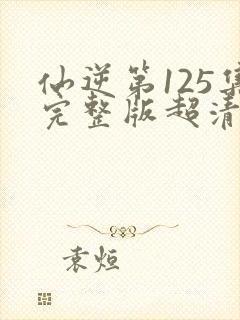 仙逆第125集
完整版超清
袁烜